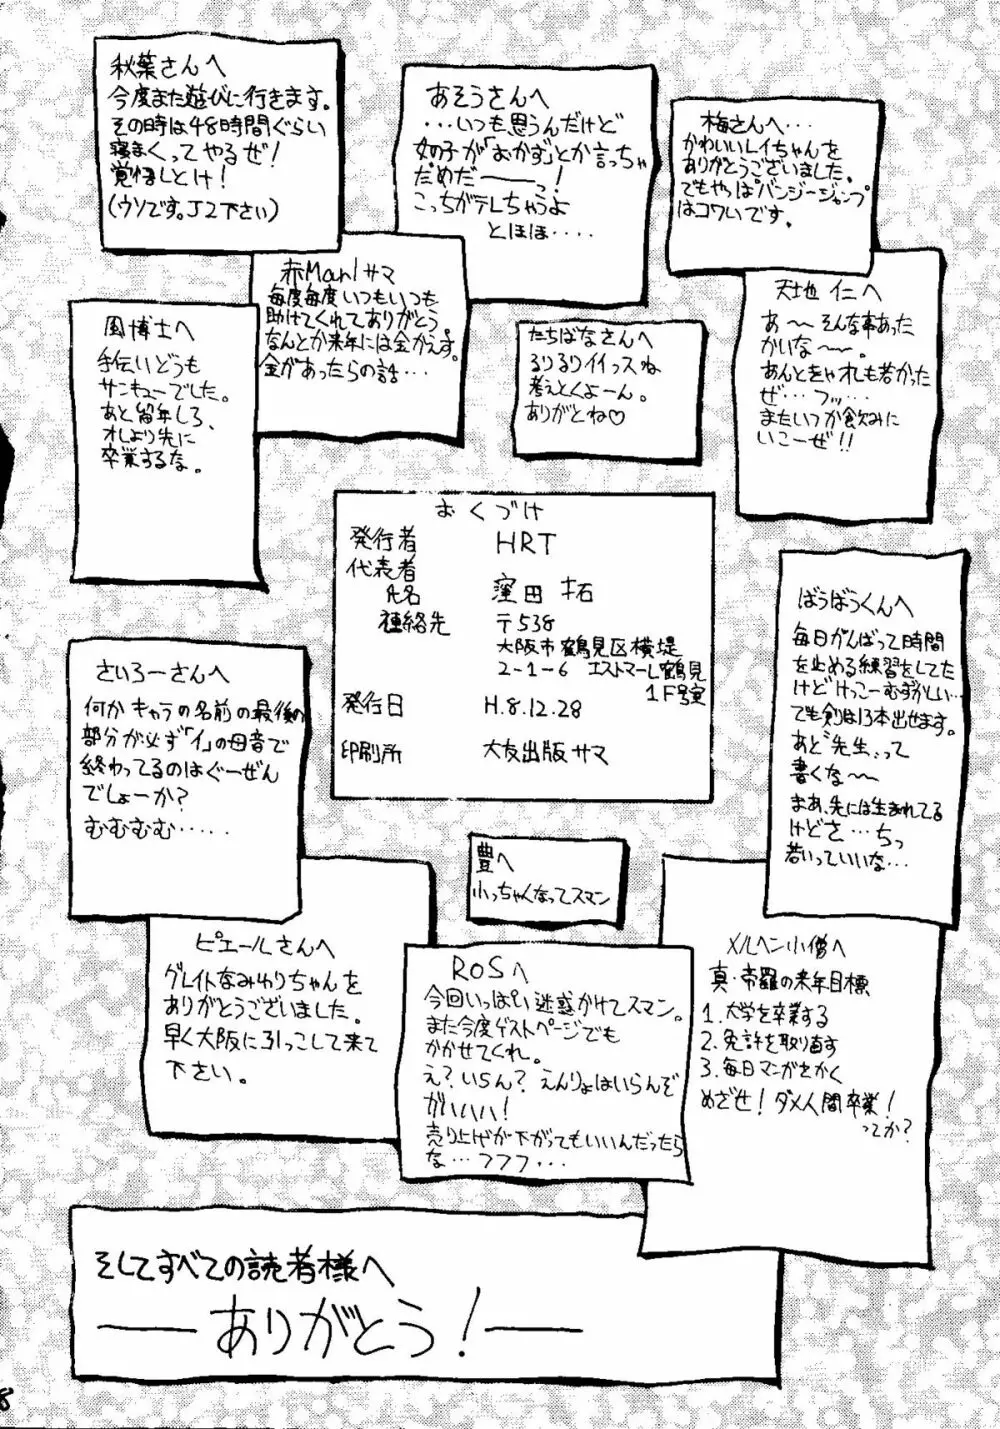 秋葉さんへ
今度また遊びに行きます。
その時は48時間ぐらい
寝まくってやるぜ!
覚悟しとけ!
(ウソです。J2下さい)
あそうさんへ
・・・いつも思うんだけど
女の子が「おかず」とか言っちゃ
だめだ――っ!
こっちがテレちゃうよ
とほほ・・・・
梅さんへ・・・
かわいいレイちゃんを
ありがとうございました。
でもやっぱバンジージャンプ
はコワいです。
赤Marlサマ
毎度毎度いつもいつも
助けてくれてありがとう
なんとか来年には金かえす。
金があったらの話・・・
風博士へ
手伝いどうも
サンキューでした。
あと留年しろ、
オレより先に
卒業するな。
たちばなさんへ
るりるりイイっスね
考えとくよーん。
ありがとね♡
天地 仁へ
あ〜〜そんな事あった
かいな〜〜。
あんときゃオレも若かった
ぜ・・・フッ・・・
またいつか飲みに
いこーぜ!!
おくづけ
発行者 HRT
代表者
氏名 窪田 拓
連絡先 〒538
大阪市鶴見区横堤
2-1-6 エストマール鶴見
1F号室
発行日 H.8.12.28
印刷所 大友出版サマ
ばうばうくんへ
毎日がんばって時間
を止める練習をしてた
けどけっこーむずかしい・・・
でも剣は13本出せます。
あと“先生”って
書くな〜〜
まあ、先には生まれてる
けどさ・・・ちっ
若いっていいな・・・
さいろーさんへ
何かキャラの名前の最後の
部分が必ず「イ」の母音で
終わってるのはぐーぜん
でしょーか?
むむむむ・・・・・
豊へ
小っちゃくなってスマン
ピエールさんへ
グレイトなみゆりちゃんを
ありがとうございました。
早く大阪に引っこして来て
下さい。
ROSへ
今回いっぱい迷惑かけてスマン。
また今度ゲストページでも
かかせてくれ。
え?いらん?えんりょはいらんぞ
ガハハハ!
売り上げが下がってもいいんだったら
な・・・フフフ・・・
メルヘン小僧へ
真・帝羅の来年目標
1.大学を卒業する
2.免許を取り直す
3.毎日マンガをかく
めざせ!ダメ人間卒業!
ってか?
そしてすべての読者様へ
――ありがとう!――
8